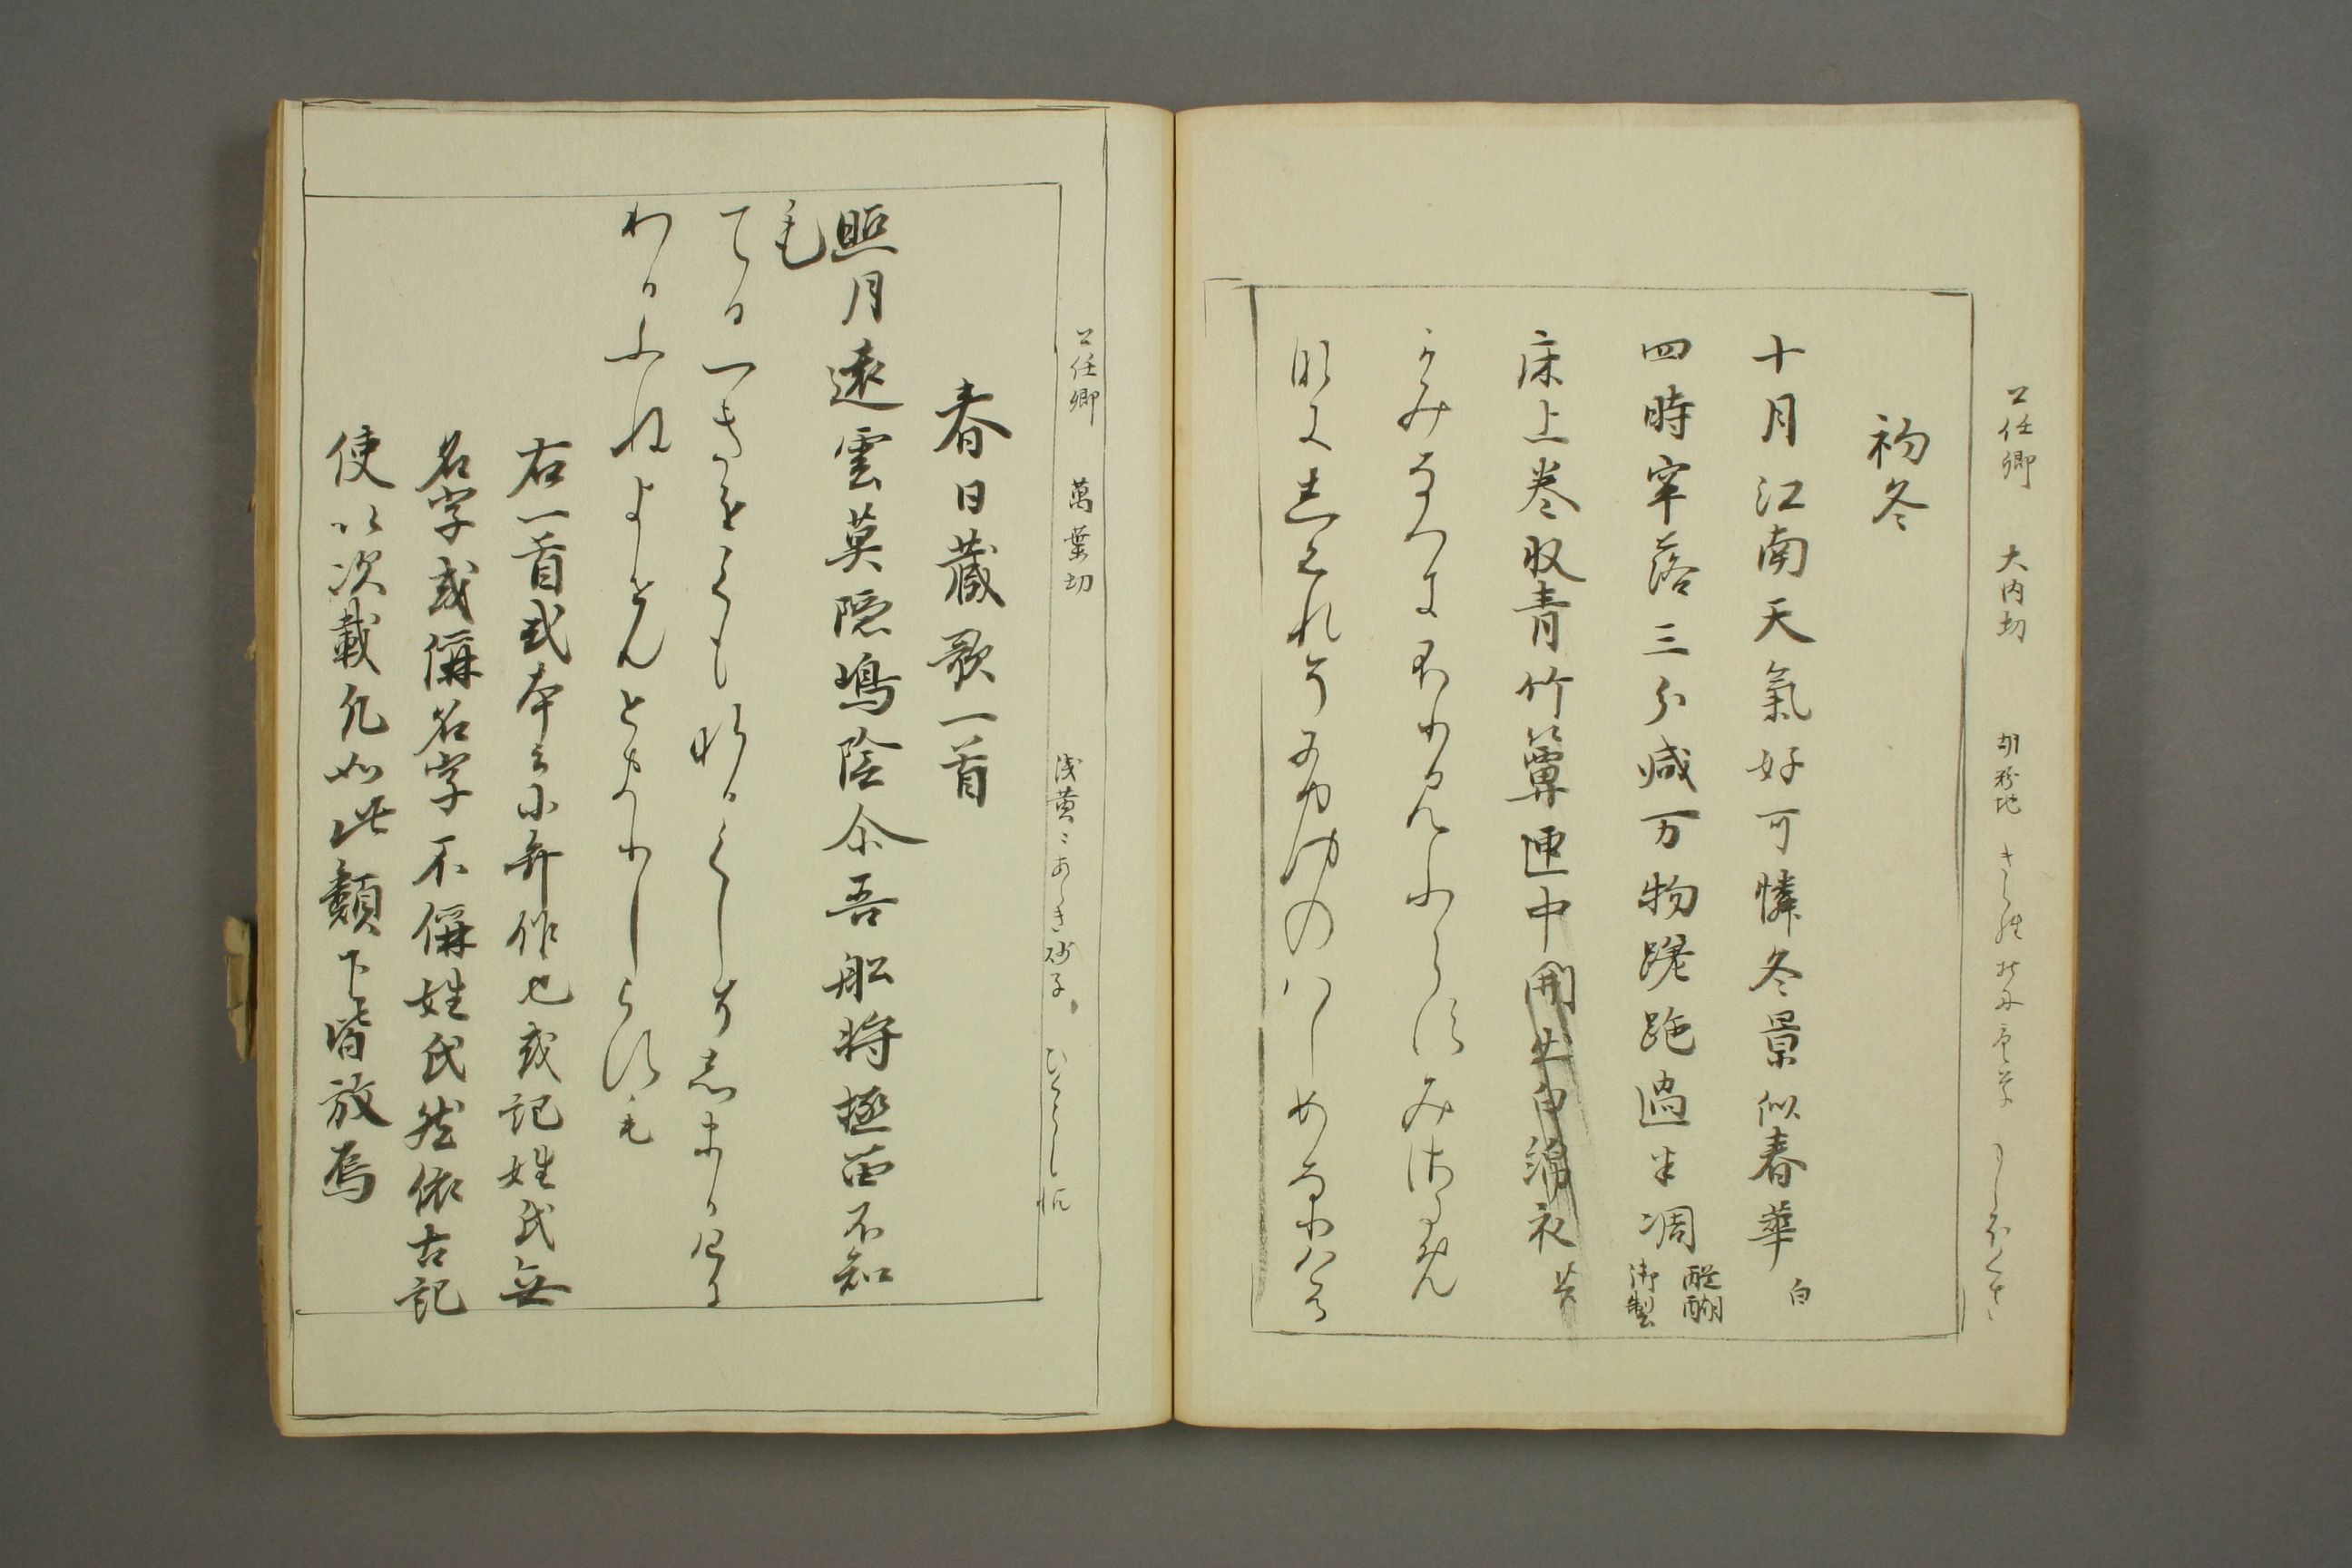 公任卿 大内切 胡粉地
初冬
十月江南天氣好可憐冬景似春華 白
四時牢落三分減万物蹉跎過半凋 醍醐
御製
床上巻収青竹簟匣中開出白綿衣 菅
かみなつきふりみふらすみさためぬ
しくれそふゆのはしめなりける
公任卿 萬葉切 浅黄ニあらき砂子
春日蔵歌一首
照月遠雲莫隠嶋陰尒吾舩将極笛不知
毛
てるつきをくもなかくしそしまかけに
わかふねよせんとまりしらすも
右一首或本云小弁作也或記姓氏無
名字或偁名字不偁姓氏然依古記
便以次載凡如此類下皆放焉